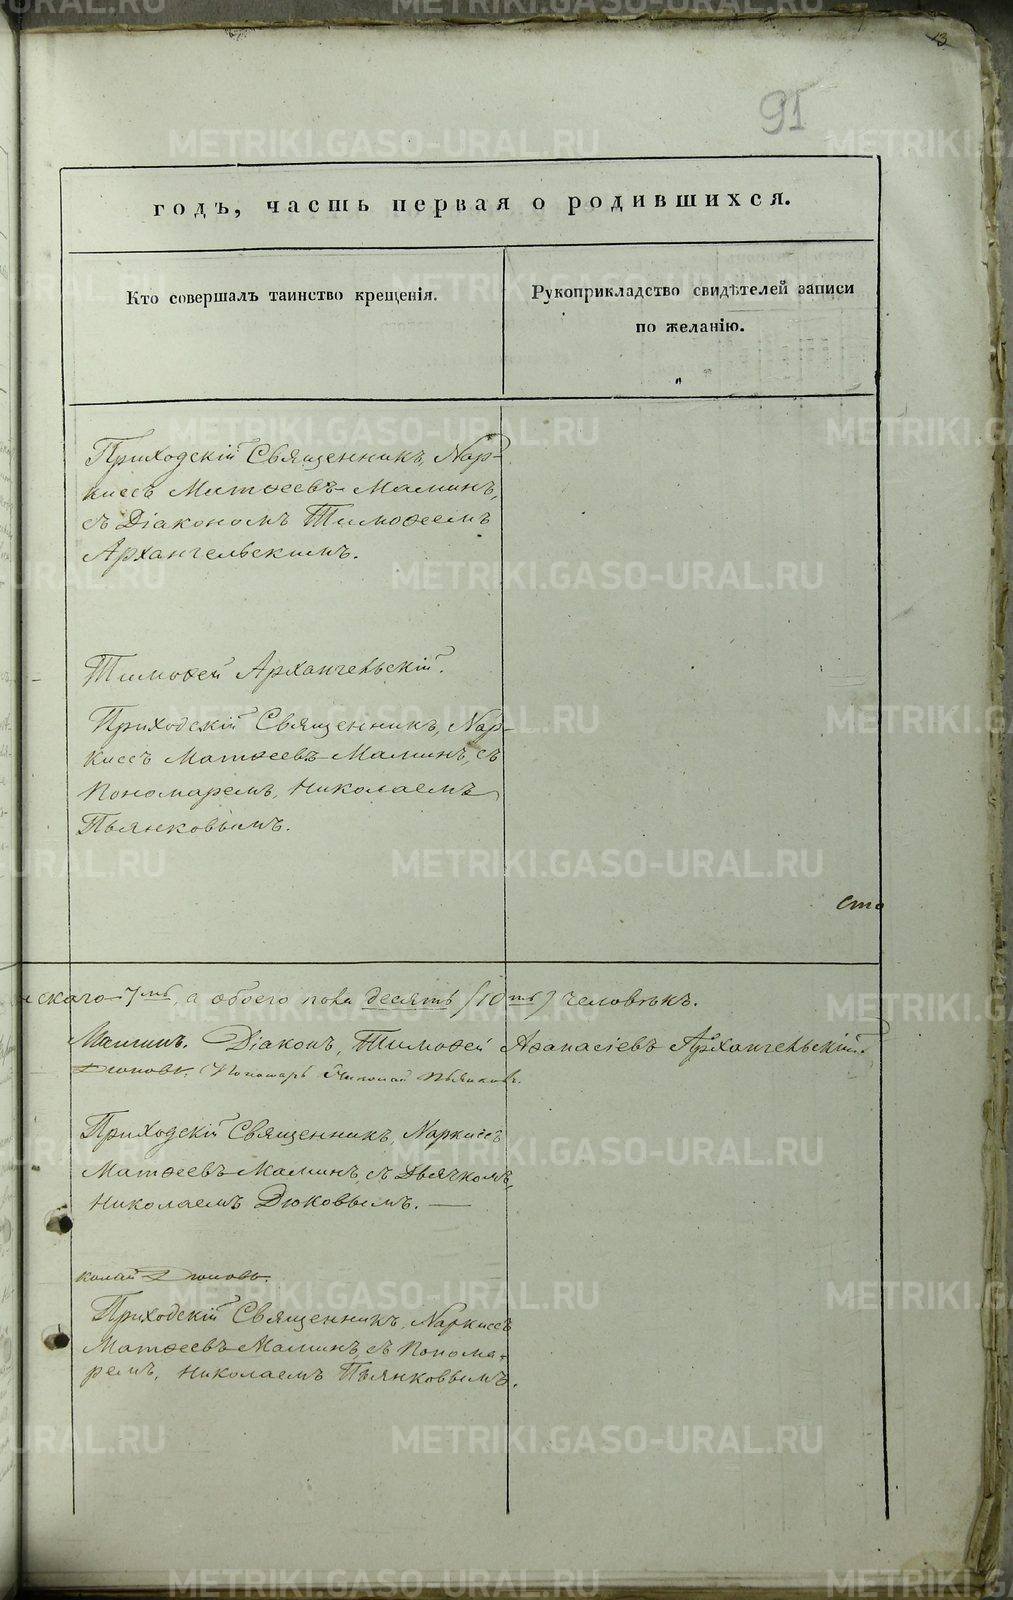 13
91
годъ, часть первая о родившихся.
Кто совершалъ таинство крещенія.
Рукоприкладство свидѣтелей записи
по желанію.
Приходскій Священникъ, Нар-
киссъ Матѳеевъ Маминъ,
съ Діакономъ Тимоѳеемъ
Архангельскимъ.
Тимоѳей Архангельскій.
Приходскій Священникъ, Нар-
киссъ Матѳеевъ Маминъ, съ
Пономаремъ, Николаемъ
Пьянковымъ.
сто
скаго 7мь, а обоего пола десять (10ть) человѣкъ.
Маминъ. Діаконъ, Тимоѳей Аѳанасіевъ Архангельскій.
Дюковъ. Пономарь Николай Пьянковъ.
Приходскій Священникъ, Наркиссъ
Матѳеевъ Маминъ, съ Дьячкомъ,
Николаемъ Дюковымъ. —
колай Дюковъ.
Приходскій Священникъ, Наркиссъ
Матѳеевъ Маминъ, съ Понома-
ремъ, Николаемъ Пьянковымъ.
METRIKI.GASO-URAL.RU